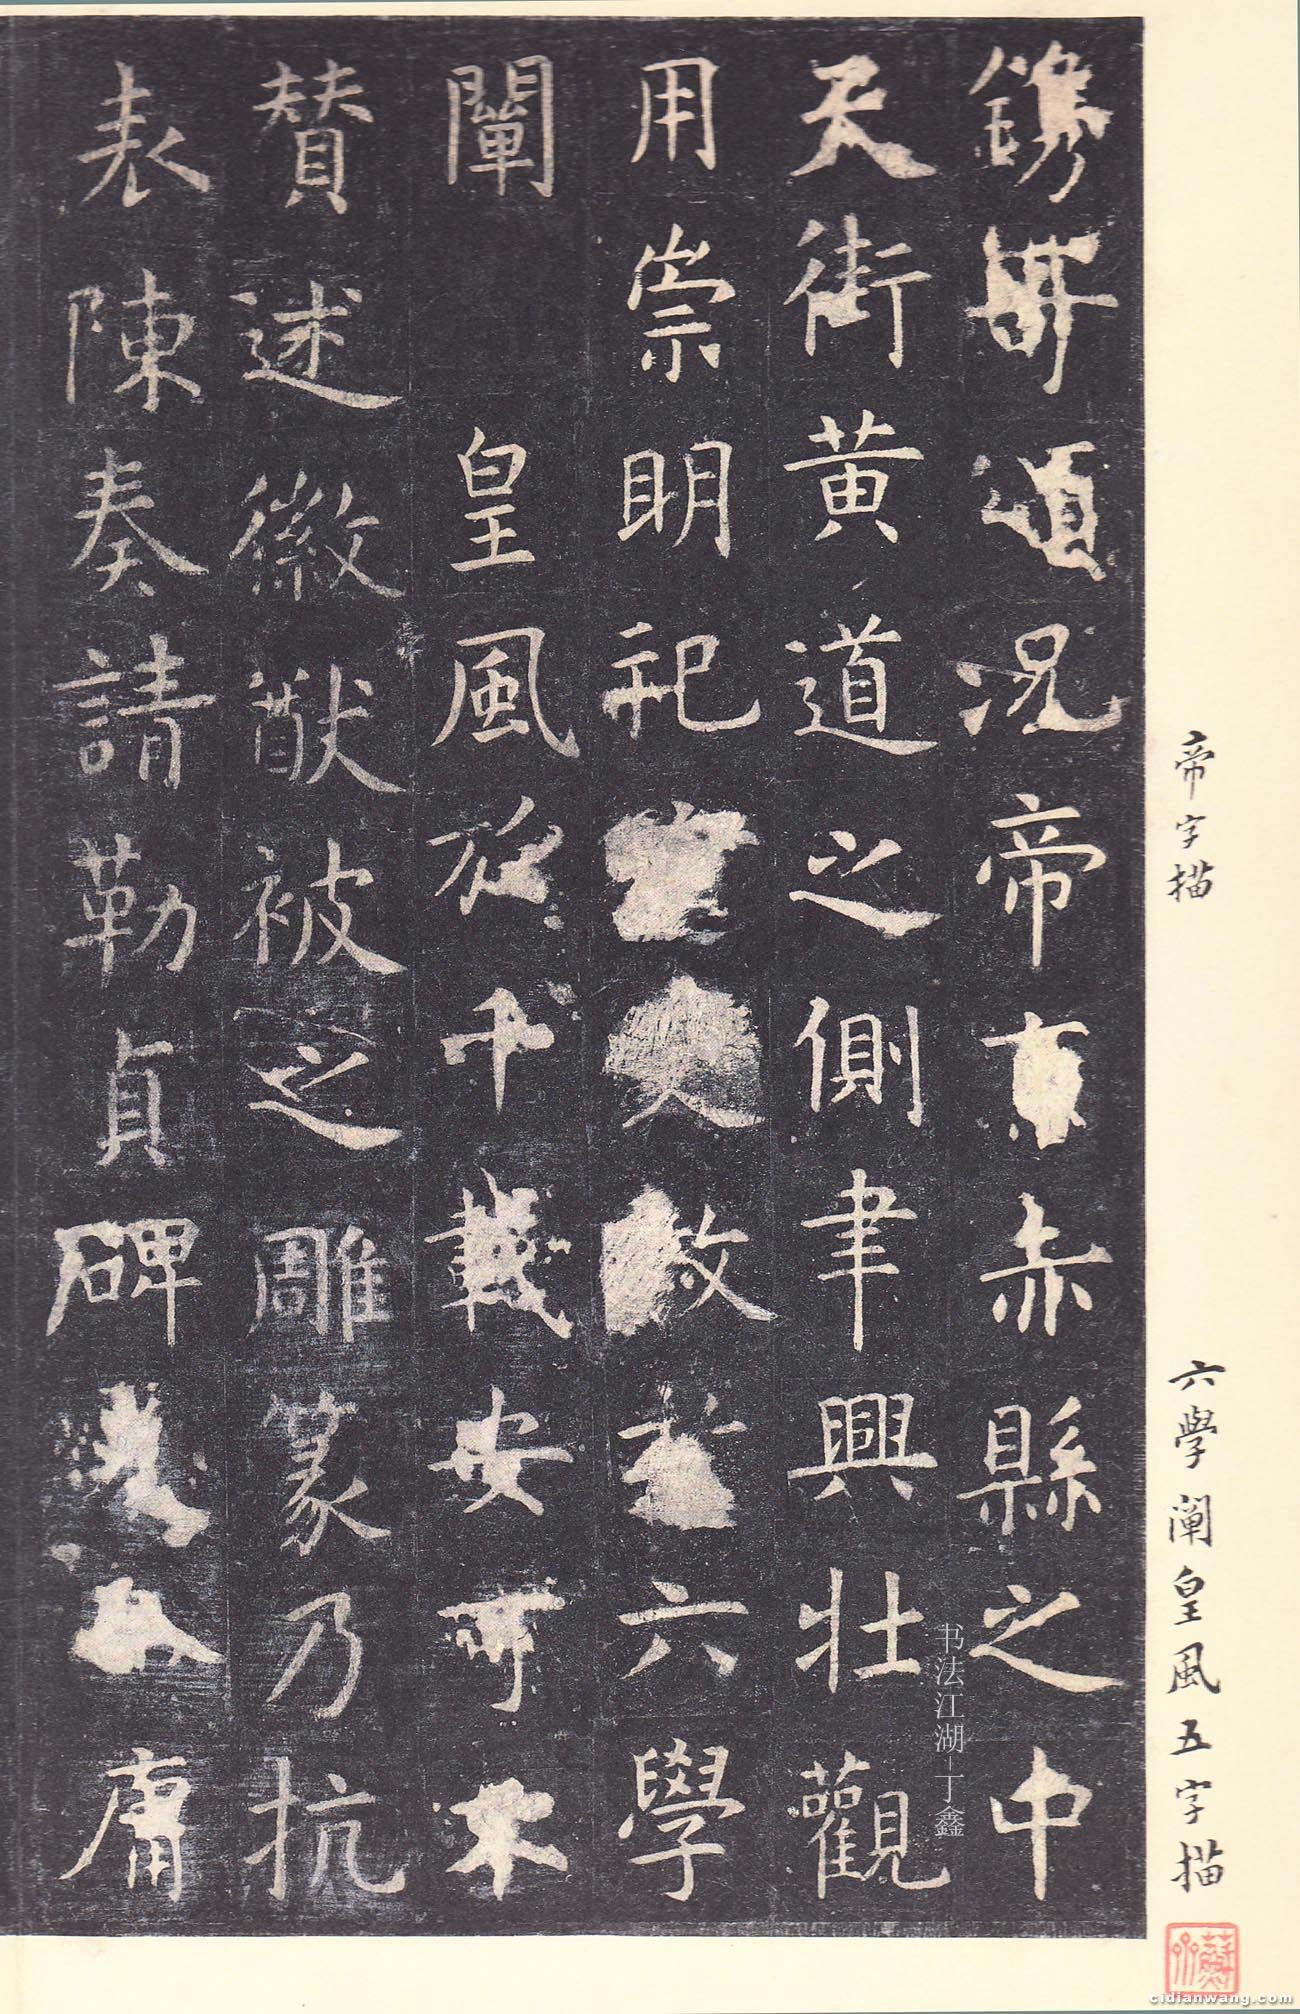 鐫歌頌況帝京赤縣之中
天街黃道之側聿興壯觀
用崇明祀
教
六學
闡 皇風於千載安可不
贊述徽猷被之雕篆乃抗
表陳奏請勒貞碑
庸
帝字描
六學闡皇風五字描
书法江湖-丁鑫
cidianwang.com